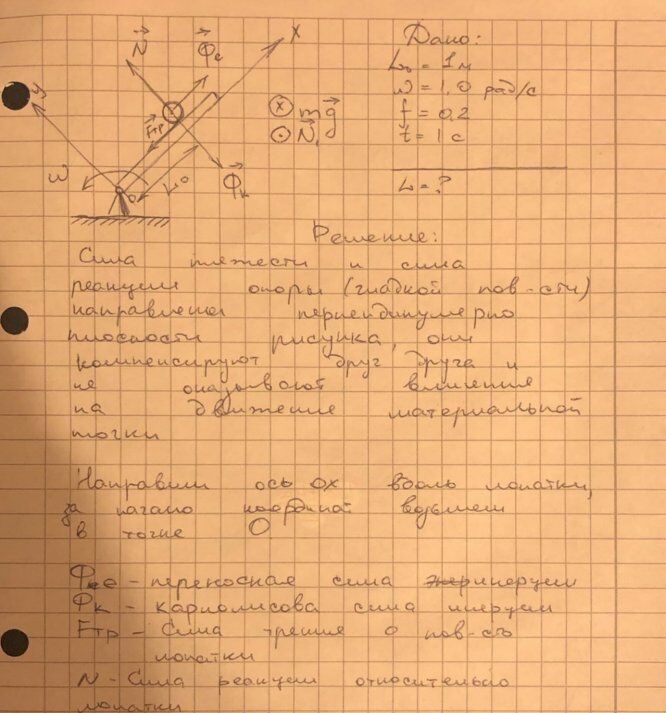 N
Фe
x
y
Fтр
ω
L₀
O
Фк
mg
N₁
Дано:
L₀ = 1 м
ω = 1.0 рад/с
f = 0,2
t = 1 с
L = ?
Решение:
Сила тяжести и сила
реакции опоры (гладкой пов-сти)
направлены перпендикулярно
плоскости рисунка, они
компенсируют друг друга и
не оказывают влияние
на движение материальной
точки
Направим ось ox вдоль лопатки,
за начало координат возьмем
в точке O
Фe - переносная сила инерции
Фк - кариолисова сила инерции
Fтр - Сила трения о пов-сть
лопатки
N - Сила реакции относительно
лопатки